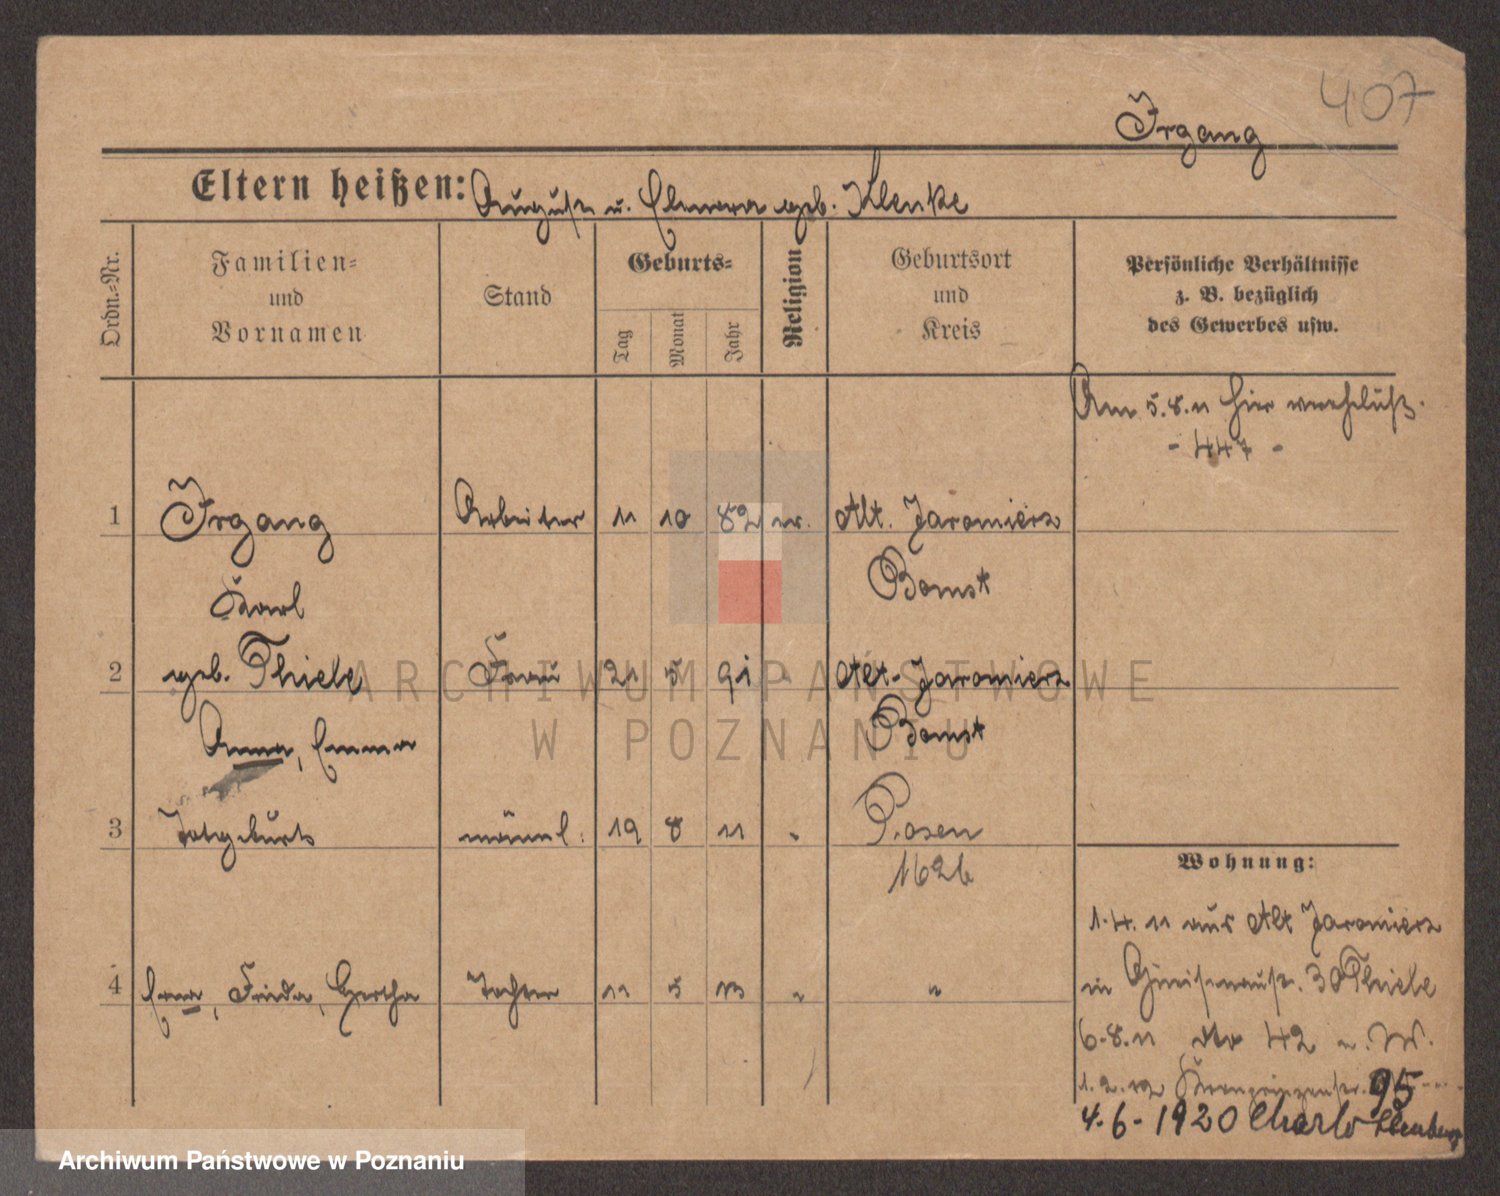 407
Irgang
Eltern heißen: August u. geb. Klenke
Ordn.-Nr.
Familien=
und
Vornamen
Stand
Geburts=
Tag
Monat
Jahr
Religion
Geburtsort
und
Kreis
Persönliche Verhältnisse
z. B. bezüglich
des Gewerbes usw.
Am 5.8.11 hier
- 447 -
1 Irgang Arbeiter 11 10 82 ev. Alt. Jaromierz
Karl Bomst
2 geb. Thiele Frau 21 5 91 " Alt-Jaromierz
Anna, Emma Bomst
3 Totgeburt männl. 19 8 11 " Posen
1626
4 Erna, Frieda, Hertha Tochter 11 5 13 " "
Wohnung:
1.4.11 aus Alt Jaromierz
in Gneisenaustr. 30 Thiele
6.8.11 dto 42 u. W.
1.2.12 Kronprinzenstr. 95
4.6-1920 Charlottenburg
ARCHIWUM PAŃSTWOWE
W POZNANIU
Archiwum Państwowe w Poznaniu